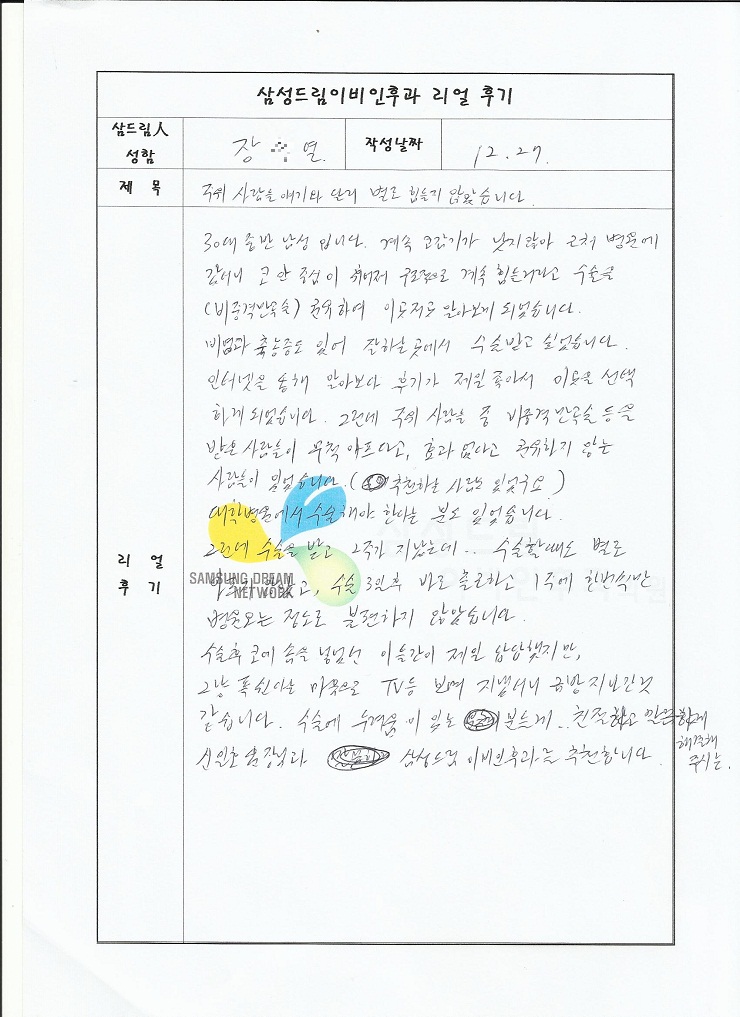 삼성드림이비인후과 리얼 후기
삼드림人 성함
장 열.
작성날짜
12.27.
제 목
주위 사람들 얘기와 달리 별로 힘들지 않았습니다.
리 얼 후 기
30대 중반 남성 입니다. 계속 코감기가 낫지않아 근처 병원에
갔더니 코 안 중심이 휘어져 구조적으로 계속 힘들거라고 수술을
(비중격만곡술) 권유하여 이곳저곳 알아보게 되었습니다.
비염과 축농증도 있어 잘하는 곳에서 수술받고 싶었습니다.
인터넷을 통해 알아보다 후기가 제일 좋아서 이곳을 선택
하게 되었습니다. 그런데 주위 사람들 중 비중격만곡술 등을
받은 사람들이 무척 아프다고, 효과 없다고 권유하지 않는
사람들이 있었습니다. ( 추천하는 사람도 있었구요)
대학병원에서 수술해야 한다는 분도 있었습니다.
그런데 수술을 받고 2주가 지났는데.. 수술할때도 별로
수술 3일후 바로 출근하고 1주에 한번씩만
병원오는 정도로 불편하지 않았습니다.
수술후 코에 솜을 넣었던 이틀간이 제일 답답했지만,
그냥 푹 쉰다는 마음으로 TV등 보며 지냈더니 금방 지나간것
같습니다. 수술에 두려움이 있는 분들께.. 친절하고 깔끔하게
해결해
주시는.
신일호 원장님과 삼성드림 이비인후과를 추천합니다.
SAMSUNG DREAM
NETWORK